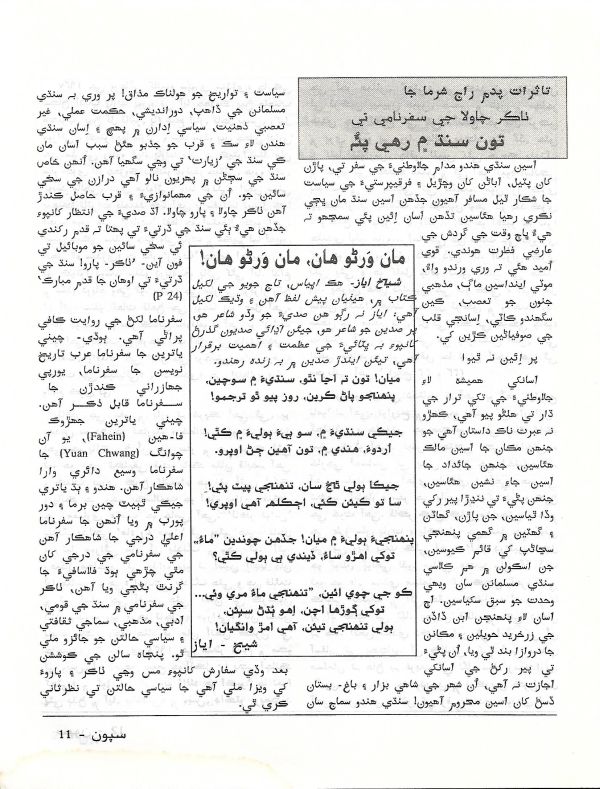 تاثرات پدم راج شرما جا
ٺاڪر چاولا جي سفرنامي تي
تون سنڌ ۾ رهي پئُہ
اَسين سنڌي هندو مدام جلاوطنيءَ جي سفر تي، پاڙن
کان پٽيل، اَباڻن کان وڇڙيل ۽ فرقيپرستيءَ جي سياست
جا شڪار ٿيل مسافر آهيون جڏهن اسين سنڌ مان پڇي
نڪري رهيا هئاسين تڏهن اسان اِئين پئي سمجهو تہ
هيءُ پاڇ وقت جي گردش جي
عارضي فطرت هوندي. قوي
اُميد هئي تہ وري ورندو واءُ،
موٽي اينداسين ماڳ، مذهبي
جنون جو تعصب، ڪين
سگهندو کائي، اِنسانجي قلب
جي صوفياڻين ڪڙين کي.
پر اِئين نہ ٿيو!
اسانکي هميشہ لاءِ
جلاوطنيءَ جي تکي ترار جي
ڌار تي هلڻو پيو آهي، ڪهڙو
نہ عبرت ناڪ داستان آهي جو
جنهن مڪان جا اسين مالڪ
هئاسين، جنهن جائداد جا
اسين جاءِ نشين هئاسين،
جنهن پڻيءَ تي ننڍڙا پير رکي
وڌا ٿياسين، جن پاڙن، گهاٽن
۽ گهٽين ۾ گهمي پنهنجي
سڃاڻپ کي قائم ڪيوسين،
جن اسڪولن ۾ هم ڪلاسي
سنڌي مسلمانن سان ويهي
وحدت جو سبق سکياسين. اڄ
اسان لاءِ پنهنجن ابن ڏاڏن
جي زرخريد حويلين ۽ مڪانن
جا دروازا بند ٿي ويا، اُن پڻيءَ
تي پير رکڻ جي اسانکي
اجازت نہ آهي، اُن شهر جي شاهي بزار ۽ باغ- بستان
ڏسڻ کان اسين محروم آهيون! سنڌي هندو سماج سان
سياست ۽ تواريخ جو هولناڪ مذاق! پر وري بہ سنڌي
مسلمانن جي ڏاهپ، دورانديشي، حڪمت عملي، غير
تعصبي ذهنيت، سياسي اِدارن ۾ پهچ ۽ اِسان سنڌي
هندن لاءِ سڪ ۽ قرب جو جذبو هئڻ سبب اَسان مان
ڪي سنڌ جي ’زيارت‘ تي وڃي سگهيا آهن. اُنهن خاص
سنڌ جي سڃڻن ۾ پهريون نالو آهي درازن جي سخي
سائين جو. اُن جي مهمانوازيءَ ۽ قرب حاصل ڪندڙ
آهن ٺاڪر چاولا ۽ پارو چاولا. اڌ صديءَ جي انتظار کانپوءِ
جڏهن هيءُ ٻئي سنڌ جي ڌرتيءَ تي پهتا تہ قدم رکندي
ئي سخي سائين جو موبائيل تي
فون آين- ’ٺاڪر- پارو! سنڌ جي
ڌرتيءَ تي اوهان جا قدم مبارڪ‘
(P 24)
سفرناما لکڻ جي روايت ڪافي
پراڻي آهي. ٻوڌي- چيني
ياترين جا سفرناما عرب تاريخ
نويسن جا سفرناما، يورپي
جهازراني ڪندڙن جا
سفرناما قابل ذڪر آهن.
چيني ياترين جهڙوڪ
فا-هين (Fahein)، يو آن
چوانگ (Yuan Chwang) جا
سفرناما وسيع دائري وارا
شاهڪار آهن. هندو ۽ ٻڌ ياتري
جيڪي ٿٻيٽ چين برما ۽ دور
پورب ۾ ويا اُنهن جا سفرناما
اعليٰ درجي جا شاهڪار آهن
جي سفرنامي جي درجي کان
مٿي چڙهي ٻوڌ فلاسافيءَ جا
گرنٿ بڻجي ويا آهن، ٺاڪر
جي سفرنامي ۾ سنڌ جي قومي،
ادبي، مذهبي، سماجي ثقافتي
۽ سياسي حالتن جو جائزو ملي
ٿو. پنجاه سالن جي ڪوششن
بعد وڏي سفارش کانپوءِ مس وڃي ٺاڪر ۽ پاروءَ
کي ويزا ملي آهي جا سياسي حالتن تي نظرثاني
ڪري ٿي.
مان وَرڻو هان، مان وَرڻو هان!
شيخ اياز- هڪ اڀياس، تاج جويو جي لکيل
ڪتاب ۾، هيٺيان پيش لفظ آهن ۽ وڌيڪ لکيل
آهي: اياز نہ رڳو هن صديءَ جو وڏو شاعر هو،
پر صدين جو شاعر هو، جيئن اڍائي صديون گذرڻ
کانپوءِ بہ ڀٽائيءَ جي عظمت ۽ اهميت برقرار
آهي، تيئن ايندڙ صدين ۾ بہ زنده رهندو.
ميان! تون تہ اڃا نٿو، سنڌيءَ ۾ سوچين.
پنهنجو پاڻ ڪرين، روز پيو ٿو ترجمو!
جيڪي سنڌيءَ ۾، سو ٻيءَ ٻوليءَ ۾ ڪٿي!
اُردوءَ، هندي ۾، تون آهين ڄڻ اوپرو.
جيڪا ٻولي ڳڀ سان، تنهنجي پيٽ پئي!
سا تو ڪيئن ڪئي، اڄڪلهہ آهي اوپري!
پنهنجيءَ ٻوليءَ ۾ ميان! جڏهن چوندين ”ماءُ،
توکي اهڙو ساءُ، ڏيندي ٻي ٻولي ڪٿي؟
ڪو جي چوي ائين، ”تنهنجي ماءُ مري وئي...
توکي ڳوڙها اچن، اِهو ٻڌڻ سيئن.
ٻولي تنهنجي تيئن، آهي امڙ وانگيان!
شيخ - اياز
سپون - 11